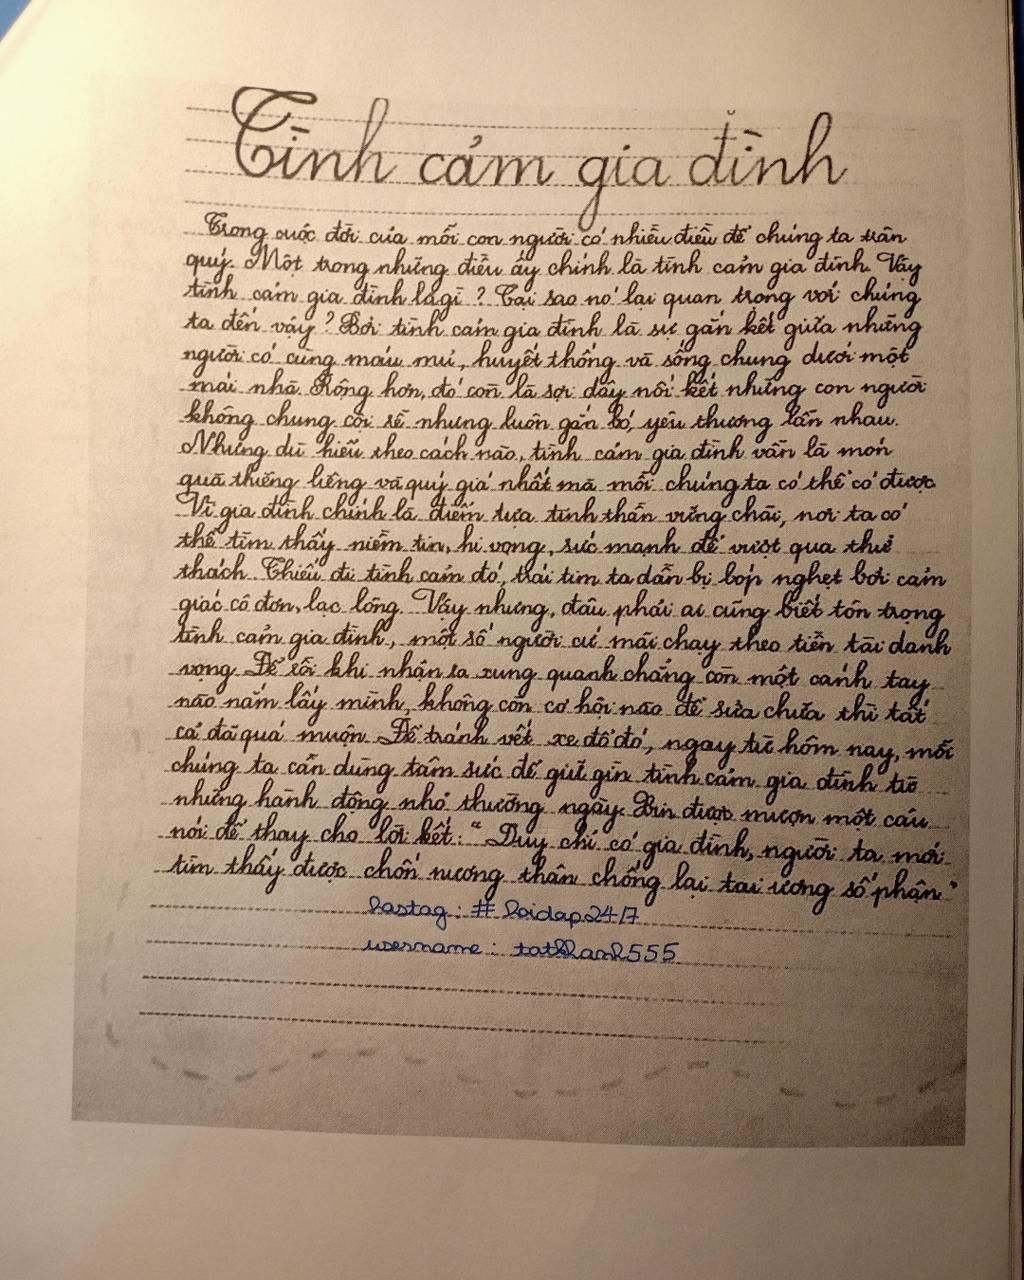 Tình cảm gia đình
Trong cuộc đời của mỗi con người có nhiều điều để chúng ta trân
quý. Một trong những điều ấy chính là tình cảm gia đình. Vậy
tình cảm gia đình là gì ? Tại sao nó lại quan trọng với chúng
ta đến vậy ? Bởi tình cảm gia đình là sự gắn kết giữa những
người có cùng máu mủ, huyết thống và sống chung dưới một
mái nhà. Rộng hơn, đó còn là sợi dây nối kết những con người
không chung cội rễ nhưng luôn gắn bó, yêu thương lẫn nhau.
Nhưng dù hiểu theo cách nào, tình cảm gia đình vẫn là món
quà thiêng liêng và quý giá nhất mà mỗi chúng ta có thể có được
Vì gia đình chính là điểm tựa tinh thần vững chãi, nơi ta có
thể tìm thấy niềm tin, hi vọng, sức mạnh để vượt qua thử
thách. Thiếu đi tình cảm đó, trái tim ta dần bị bóp nghẹt bởi cảm
giác cô đơn, lạc lõng. Vậy nhưng, đâu phải ai cũng biết tôn trọng
tình cảm gia đình, một số người cứ mãi chạy theo tiền tài danh
vọng. Để rồi khi nhận ra xung quanh chẳng còn một cánh tay
nào nắm lấy mình, không còn cơ hội nào để sửa chữa thì tất
cả đã quá muộn. Để tránh vết xe đổ đó, ngay từ hôm nay, mỗi
chúng ta cần dùng tâm sức để giữ gìn tình cảm gia đình từ
những hành động nhỏ thường ngày. Xin được mượn một câu
nói để thay cho lời kết: "Duy chỉ có gia đình, người ta mới
tìm thấy được chốn nương thân chống lại tai ương số phận"
hastag : # hoidap247
username : tatthanh555